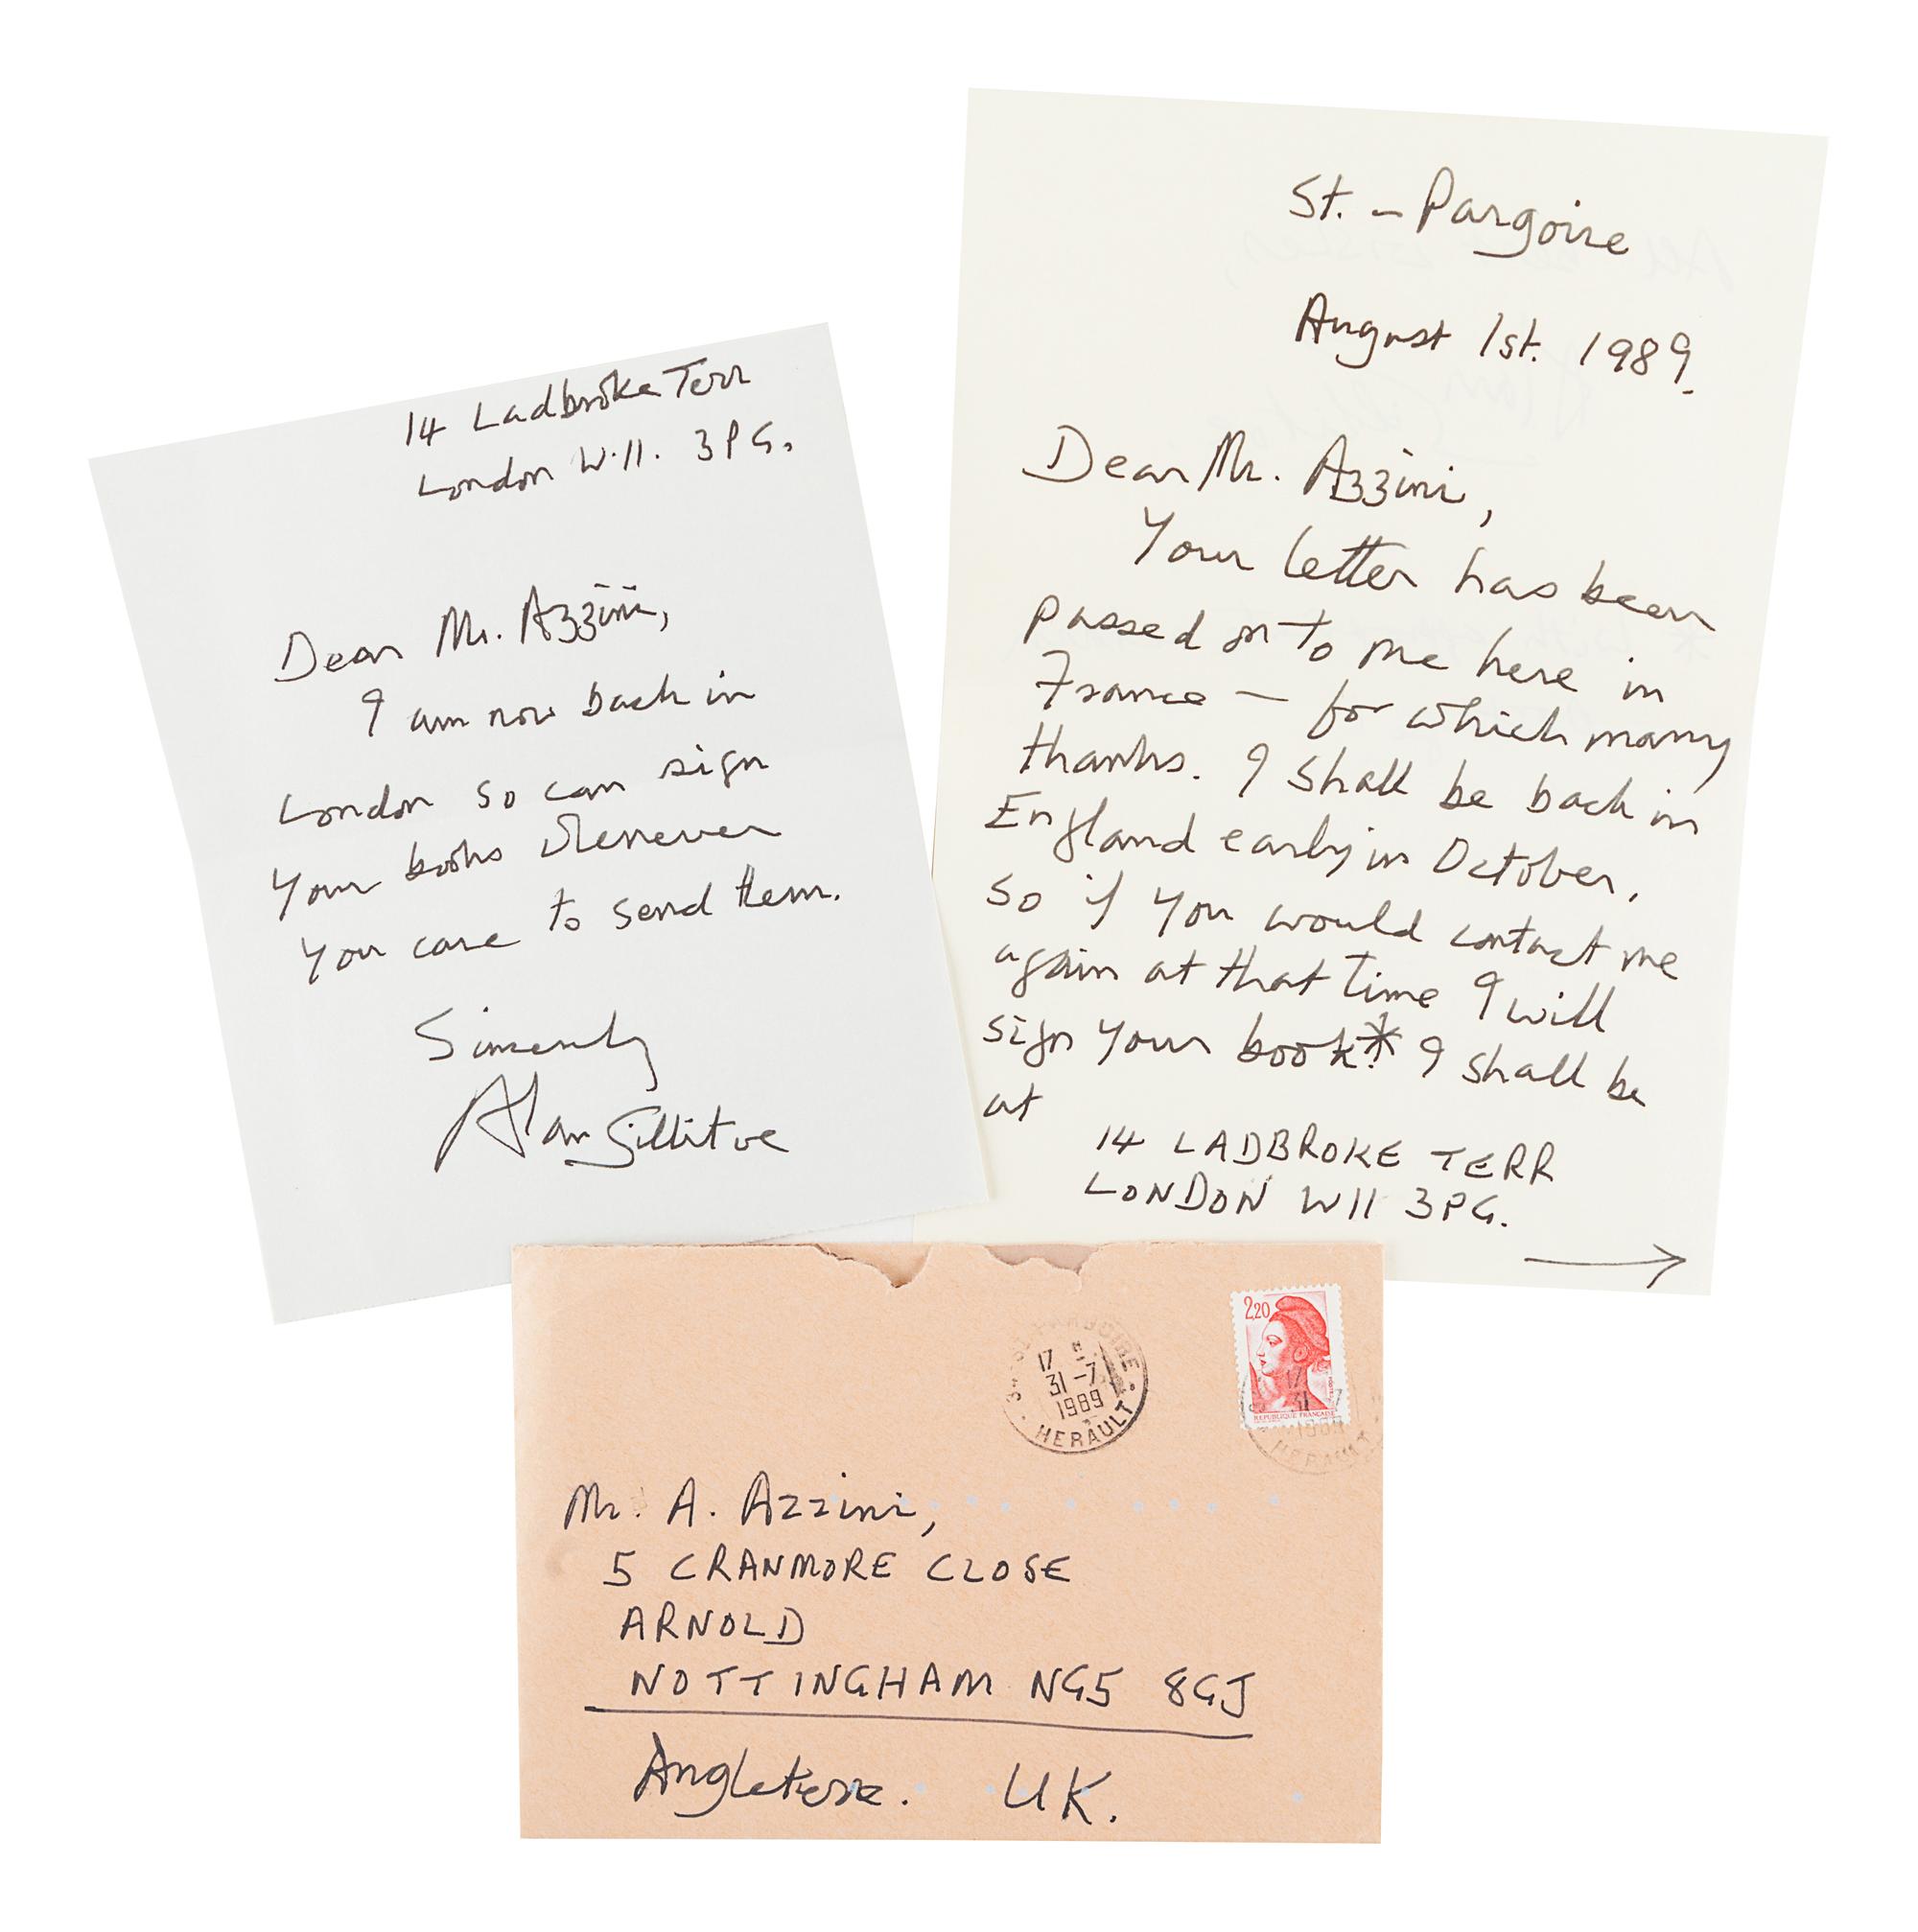 14 Ladbroke Terr
London W.11. 3PG.
Dear Mr. Azzini,
I am now back in
London so can sign
your books whenever
you care to send them.
Sincerely
Alan Sillitoe
St. - Pargoire
August 1st. 1989.
Dear Mr. Azzini,
Your letter has been
passed on to me here in
France — for which many
thanks. I shall be back in
England early in October,
so if you would contact me
again at that time I will
sign your book.* I shall be
at
14 LADBROKE TERR
LONDON W11 3PG.
→
2,20
REPUBLIQUE FRANCAISE
PARGOIRE
17
31-7
1989
HERAULT
17
31-7
1989
HERAULT
Mr. A. Azzini,
5 CRANMORE CLOSE
ARNOLD
NOTTINGHAM NG5 8GJ
Angleterre. UK.